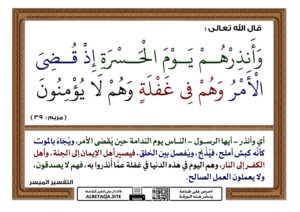 قال الله تعالى :
وَأَنذِرْهُمْ يَوْمَ الْحَسْرَةِ إِذْ قُضِيَ
الْأَمْرُ وَهُمْ فِي غَفْلَةٍ وَهُمْ لَا يُؤْمِنُونَ
(مريم: ٣٩)
أي وأنذر - أيها الرسول - الناس يوم الندامة حين يُقضى الأمر، ويُجاءُ بالموت
كأنه كبش أملح، فيُذْبَح، ويُفصل بين الخلق، فيصير أهل الإيمان إلى الجنة، وأهل
الكفر إلى النار، وهم اليوم في هذه الدنيا في غفلة عمَّا أنذروا به، فهم لا يصدقون،
ولا يعملون العمل الصالح.
التفسير الميسر
ALBETAQA.SITE
احرص على طباعة
ونشر هذه البطاقة